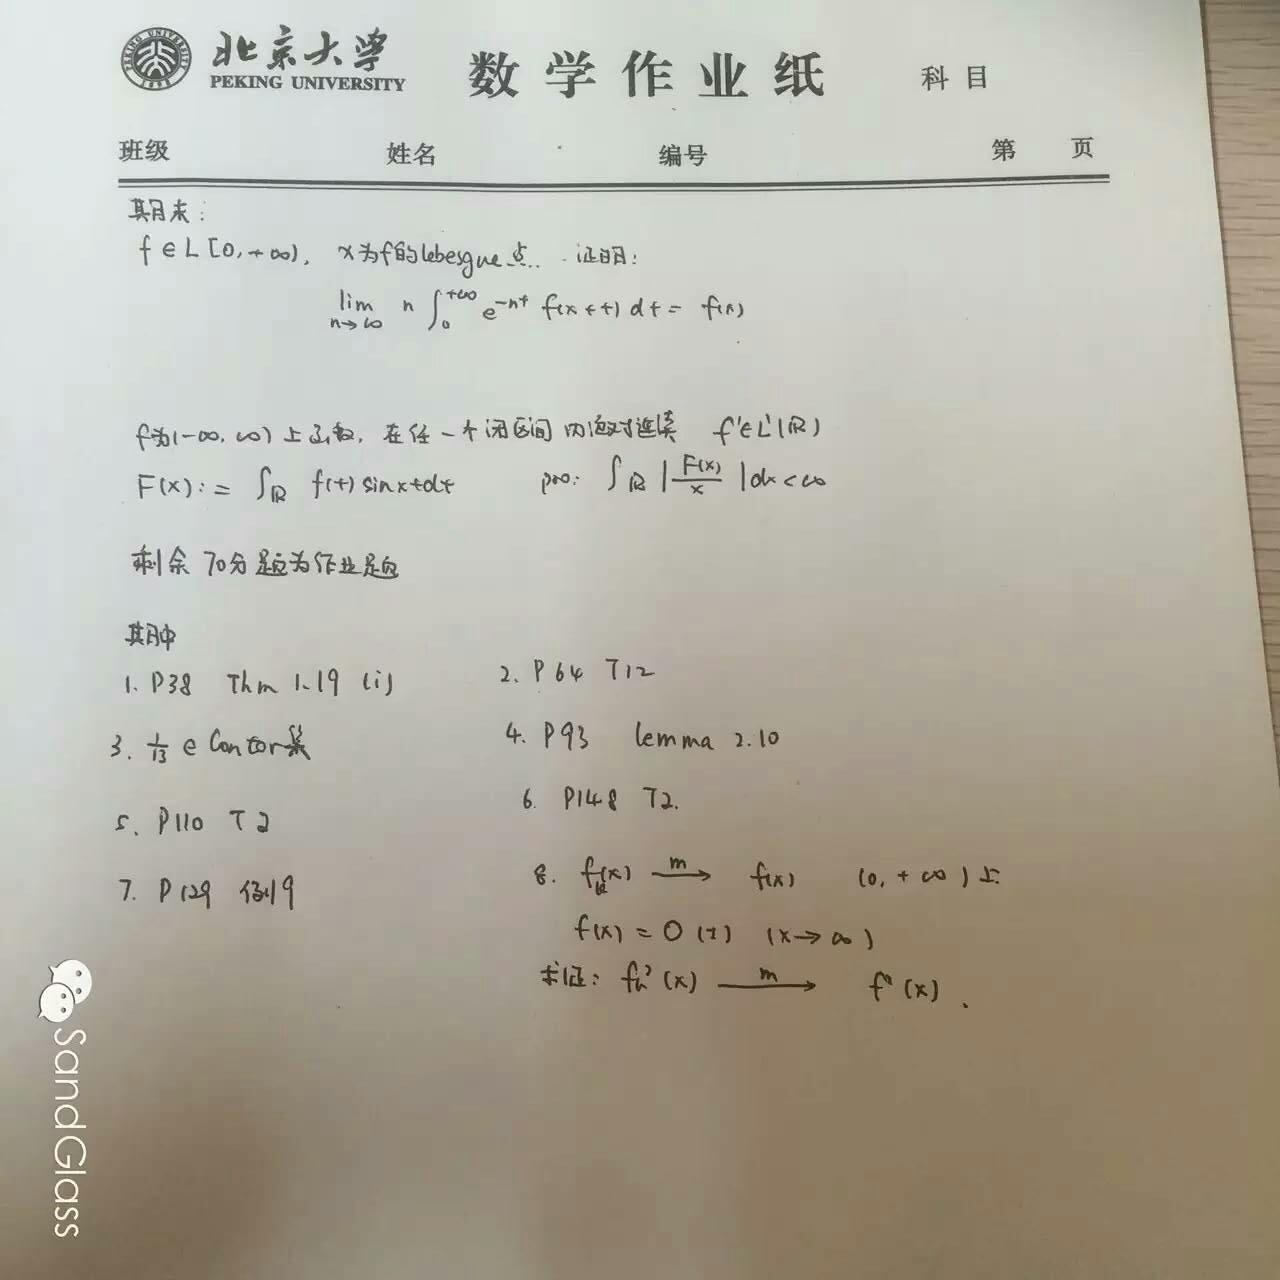 北京大学
PEKING UNIVERSITY
数学作业纸
科目
班级 姓名 编号 第 页
期末:
f ∈ L [0, +∞), x为f的lebesgue点. 证明:
lim n→∞ n ∫₀^{+∞} e^{-nt} f(x+t) dt = f(x)
f为(-∞, ∞)上函数, 在任一个闭区间内绝对连续 f'∈L'(ℝ)
F(x) := ∫_ℝ f(t) sinxt dt pro: ∫_ℝ |F(x)/x| dx < ∞
剩余70分题为作业题
期中
1. P38 Thm 1.19 (i)
2. P64 T12
3. 1/13 ∈ Cantor集
4. P93 lemma 2.10
5. P110 T2
6. P148 T2.
7. P129 例9
8. f_k(x) —m→ f(x) (0, +∞)上
f(x) = O(1) (x→∞)
求证: (x) —m→ (x).
SandGlass